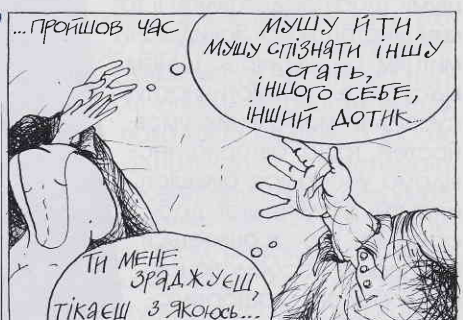 ...ПРОЙШОВ ЧАС
МУШУ ЙТИ,
МУШУ СПІЗНАТИ ІНШУ
СТАТЬ,
ІНШОГО СЕБЕ,
ІНШИЙ ДОТИК...
ТИ МЕНЕ
ЗРАДЖУЄШ,
ТІКАЄШ З ЯКОЮСЬ...